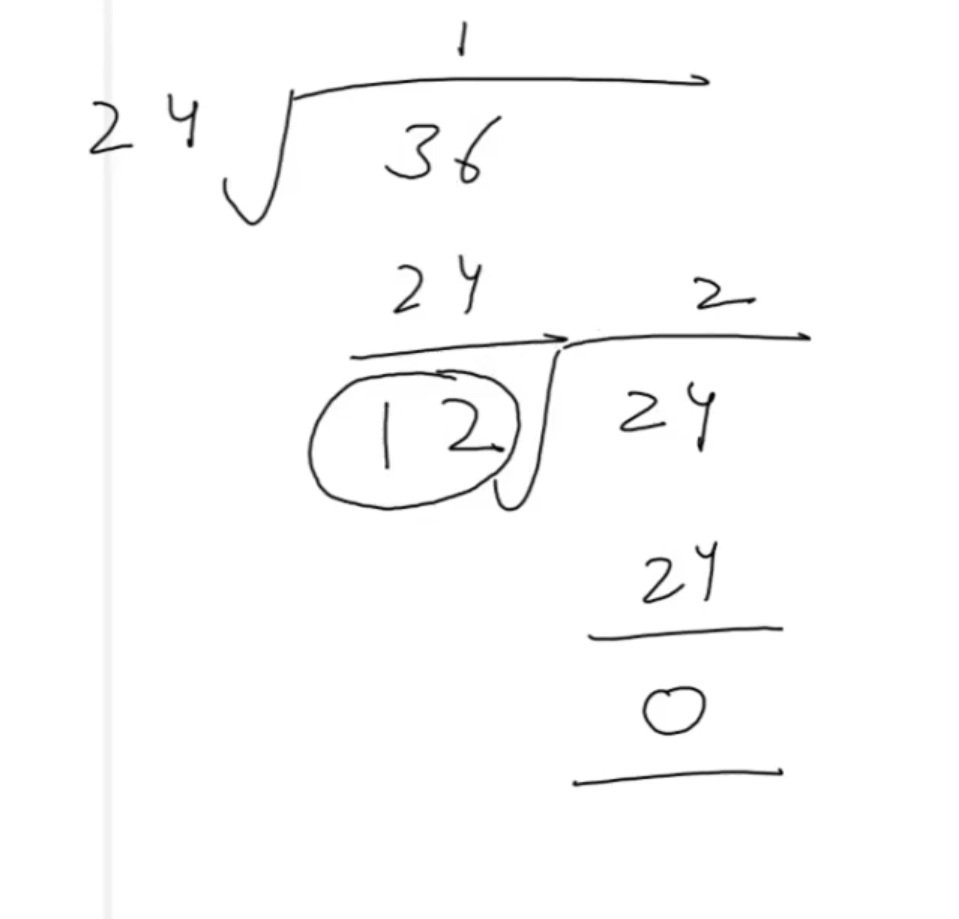 1
24 36
24 2
12 24
24
0